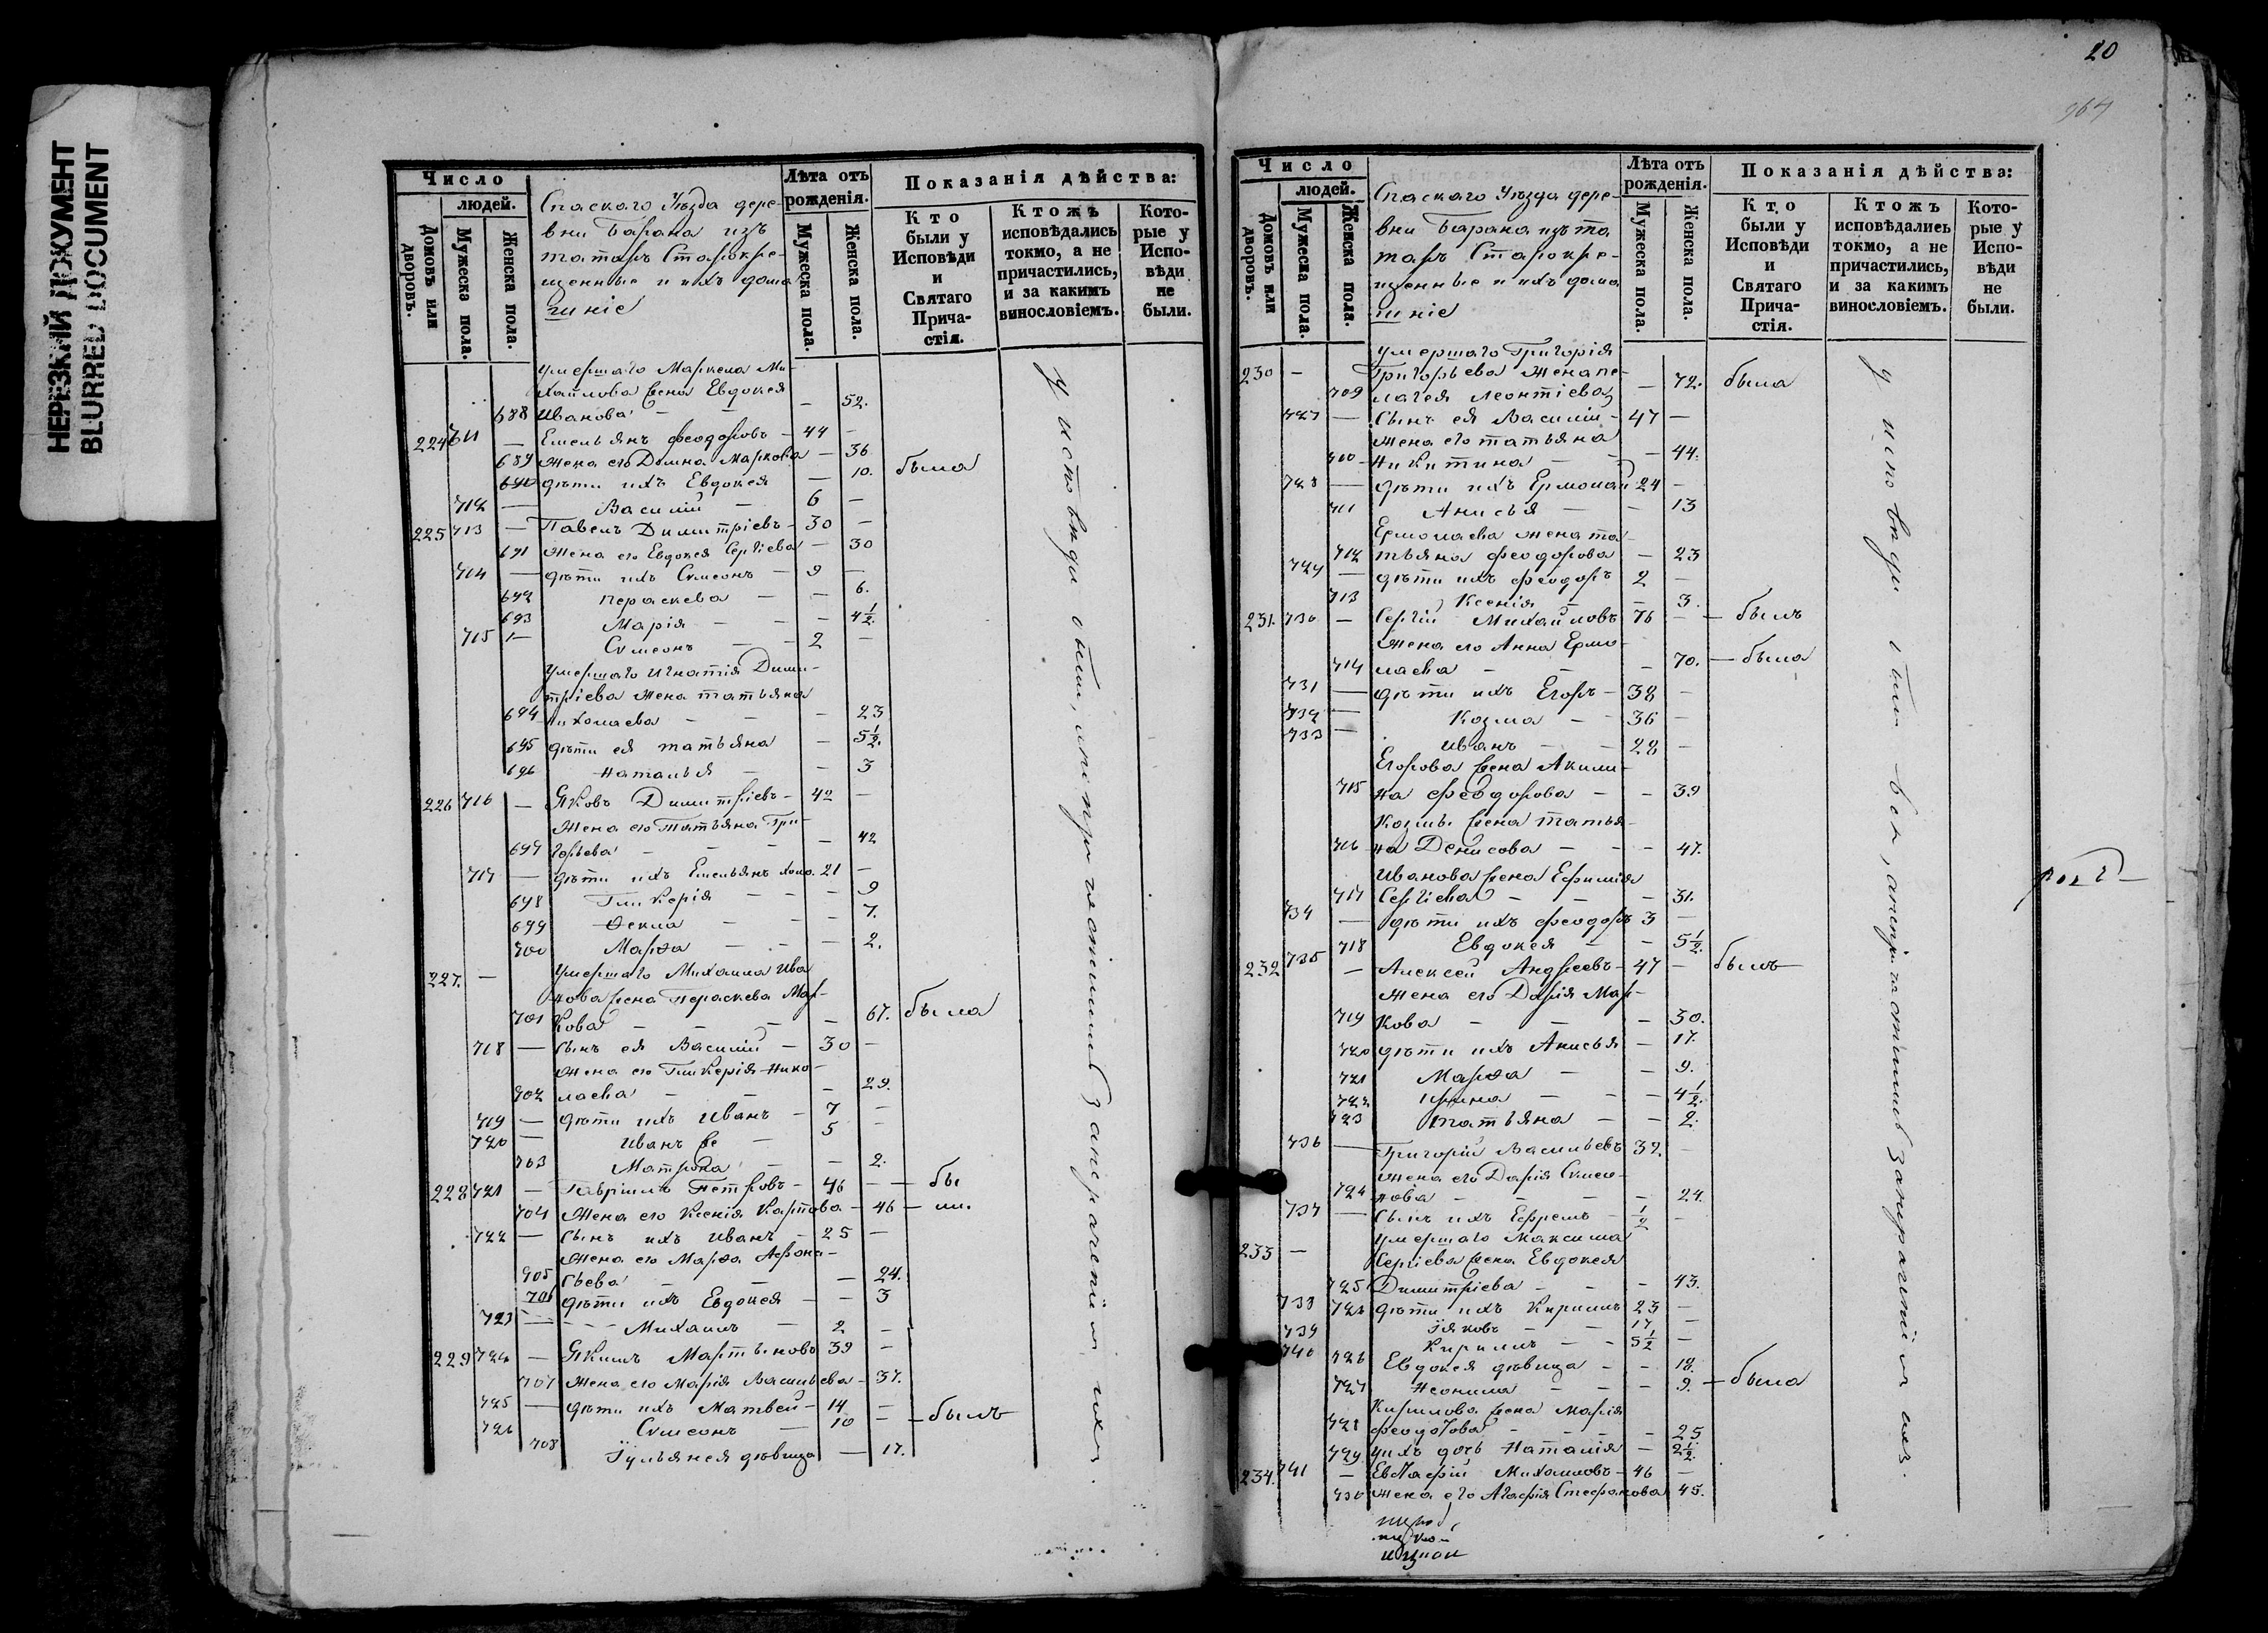 НЕРЕЗКИЙ ДОКУМЕНТ
BLURRED DOCUMENT
Число
людей.
Домовъ или дворовъ.
Мужеска пола.
Женска пола.
Спаскаго Уѣзда дере-
вни Барана изъ
татаръ Старокре-
щенные и ихъ дома
шніе
Лѣта отъ рожденія.
Мужеска пола.
Женска пола.
Показанія дѣйства:
Кто были у Исповѣди и Святаго Прича-стія.
Ктожъ исповѣдались токмо, а не причастились, и за какимъ винословіемъ.
Кото-рые у Испо-вѣди не были.
умершаго Маркела Ми-
хайлова жена Евдокея
688 Иванова — — 52.
224 711 — Емельянъ Феодоровъ — 44 —
689 Жена его Домна Маркова — 36
690 дѣти ихъ Евдокея — 10. была
712 — Василий 6 —
225 713 — Павелъ Димитріевъ — 30 —
691 Жена его Евдокея Сергіева — 30
714 — дѣти ихъ Симеонъ — 9 —
692 Пераскева — — 6.
693 Марія — — 4 1/2.
715 — Симеонъ — 2 —
Умершаго Игнатія Дими-
тріева жена татьяна
694 Николаева — — 23
695 дѣти ея татьяна — 5 1/2.
696 Наталья — — 3
226 716 — Яковъ Димитріевъ — 42 —
Жена его Татьяна Гри-
697 горьева — — 42
717 — дѣти ихъ Емельянъ холо. 21 —
698 Гликерія — — 9
699 Ѳекла — — 7.
700 Марѳа — — 2.
227. — Умершаго Михаила Ива
нова жена Пераскева Мар-
701 кова — — 67. была
718 — Сынъ ея Василий — 30 —
Жена его Гликерія Нико-
702 лаева — — 29.
719 — дѣти ихъ Иванъ — 7 —
720 — Иванъ же — 5 —
703 Матрона — — 2.
228 721 — Гавріилъ Петровъ — 46 — — бы
704 Жена его Ксенія Карпова — 46 — ли.
722 — Сынъ ихъ Иванъ — 25 —
Жена его Марѳа Афона-
705 сьева — — 24.
706 дѣти ихъ Евдокея — — 3
723 — Михаилъ — 2 —
229 724 — Якимъ Мартыновъ 39 —
707 Жена его Марія Васильева — 37.
725 — дѣти ихъ Матвей — 14 —
726 Симеонъ — 10 — — былъ
708 Іульянея дѣвица — 17.
у исповѣди были, а не причастились за нераченіемъ ихъ.
20
964
Число
людей.
Домовъ или дворовъ.
Мужеска пола.
Женска пола.
Спаскаго Уѣзда дере-
вни Барана изъ та
таръ Старокре-
щенные и ихъ дома
шніе
Лѣта отъ рожденія.
Мужеска пола.
Женска пола.
Показанія дѣйства:
Кто были у Исповѣди и Святаго Прича-стія.
Ктожъ исповѣдались токмо, а не причастились, и за какимъ винословіемъ.
Кото-рые у Испо-вѣди не были.
умершаго Григорія
230 — Григорьева жена пе-
709 лагея Леонтіева — 72. была
727 — Сынъ ея Василій — 47 —
Жена его татьяна
710 Никитина — — 44.
728 — дѣти ихъ Ермолай 24 —
711 Анисья — — 13
Ермолаева жена та-
712 тьяна Феодорова — 23
729 — дѣти ихъ Феодоръ 2 —
713 Ксенія — — 3.
231. 730 — Сергій Михайловъ 76 — — былъ
Жена его Анна Ермо-
714 лаева — — 70. — была
731 — дѣти ихъ Егоръ — 38 —
732 — Козма — 36 —
733 — Иванъ — 28 —
Егорова жена Акили-
715 на Феодорова — — 39
Козмы жена татья-
716 на Денисова — — 47.
Иванова жена Ефимія
717 Сергіева — — 31.
734 — дѣти ихъ Феодоръ 3 —
718 Евдокея — — 5 1/2.
232 735 — Алексей Андреевъ — 47 — былъ
Жена его Дарія Мар-
719 кова — — 30.
720 дѣти ихъ Анисья — 17.
721 Марѳа — — 9.
722 Ирина — — 4 1/2.
723 татьяна — — 2.
736 — Григорій Васильевъ 32. —
Жена его Дарія Симео-
724 нова — — 24.
737 — Сынъ ихъ Ефремъ — 1/2 —
233 — Умершаго Максима
Сергіева жена Евдокея
725 Димитріева — — 43.
738 дѣти ихъ Кирилъ 23 —
739 Іяковъ — 17 —
740 Кирилъ — 5 1/2 —
726 Евдокея дѣвица — — 18.
727 Неонила — — 9. — была
Кирилова жена Марія
728 Феодотова — — 25
729 ихъ дочь Наталія — 2 1/2.
234. 741 — Евграфій Михаиловъ — 46 —
730 Жена его Агафія Стефанова 45.
у исповѣди были, а не причастились за нераченіемъ ихъ.